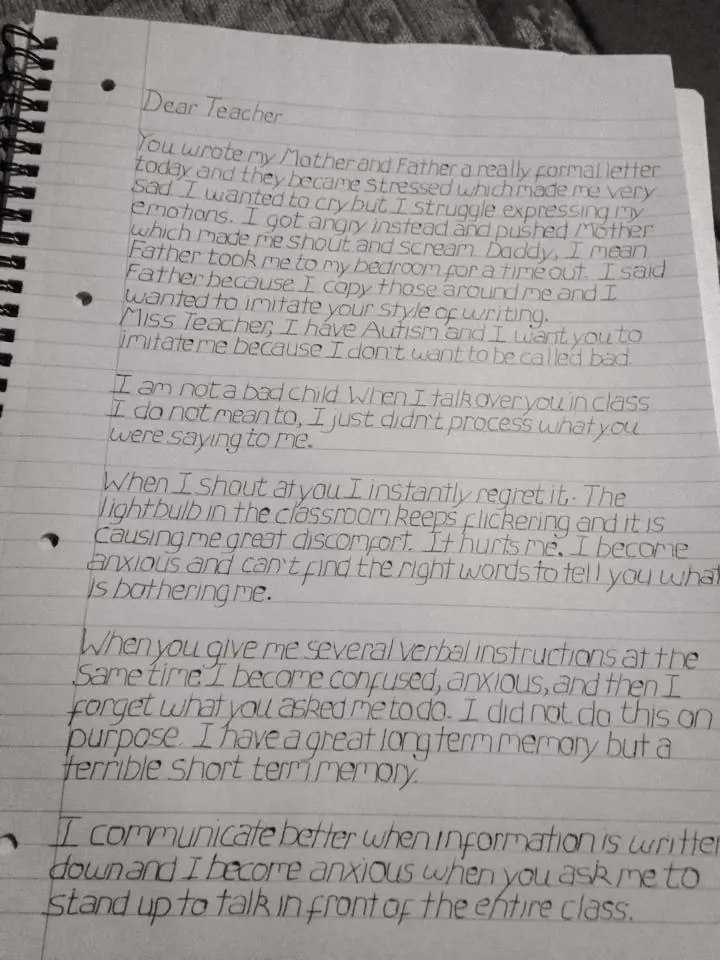 Dear Teacher
You wrote my Mother and Father a really formal letter
today and they became stressed which made me very
sad. I wanted to cry but I struggle expressing my
emotions. I got angry instead and pushed Mother
which made me shout and scream. Daddy, I mean
Father took me to my bedroom for a time out. I said
Father because I copy those around me and I
wanted to imitate your style of writing.
Miss Teacher, I have Autism and I want you to
imitate me because I don't want to be called bad.
I am not a bad child. When I talk over you in class
I do not mean to, I just didn't process what you
were saying to me.
When I shout at you I instantly regret it. The
lightbulb in the classroom keeps flickering and it is
causing me great discomfort. It hurts me. I become
anxious and can't find the right words to tell you what
is bothering me.
When you give me several verbal instructions at the
same time I become confused, anxious, and then I
forget what you asked me to do. I did not do this on
purpose. I have a great long term memory but a
terrible short term memory.
I communicate better when information is writte
down and I become anxious when you ask me to
stand up to talk in front of the entire class.